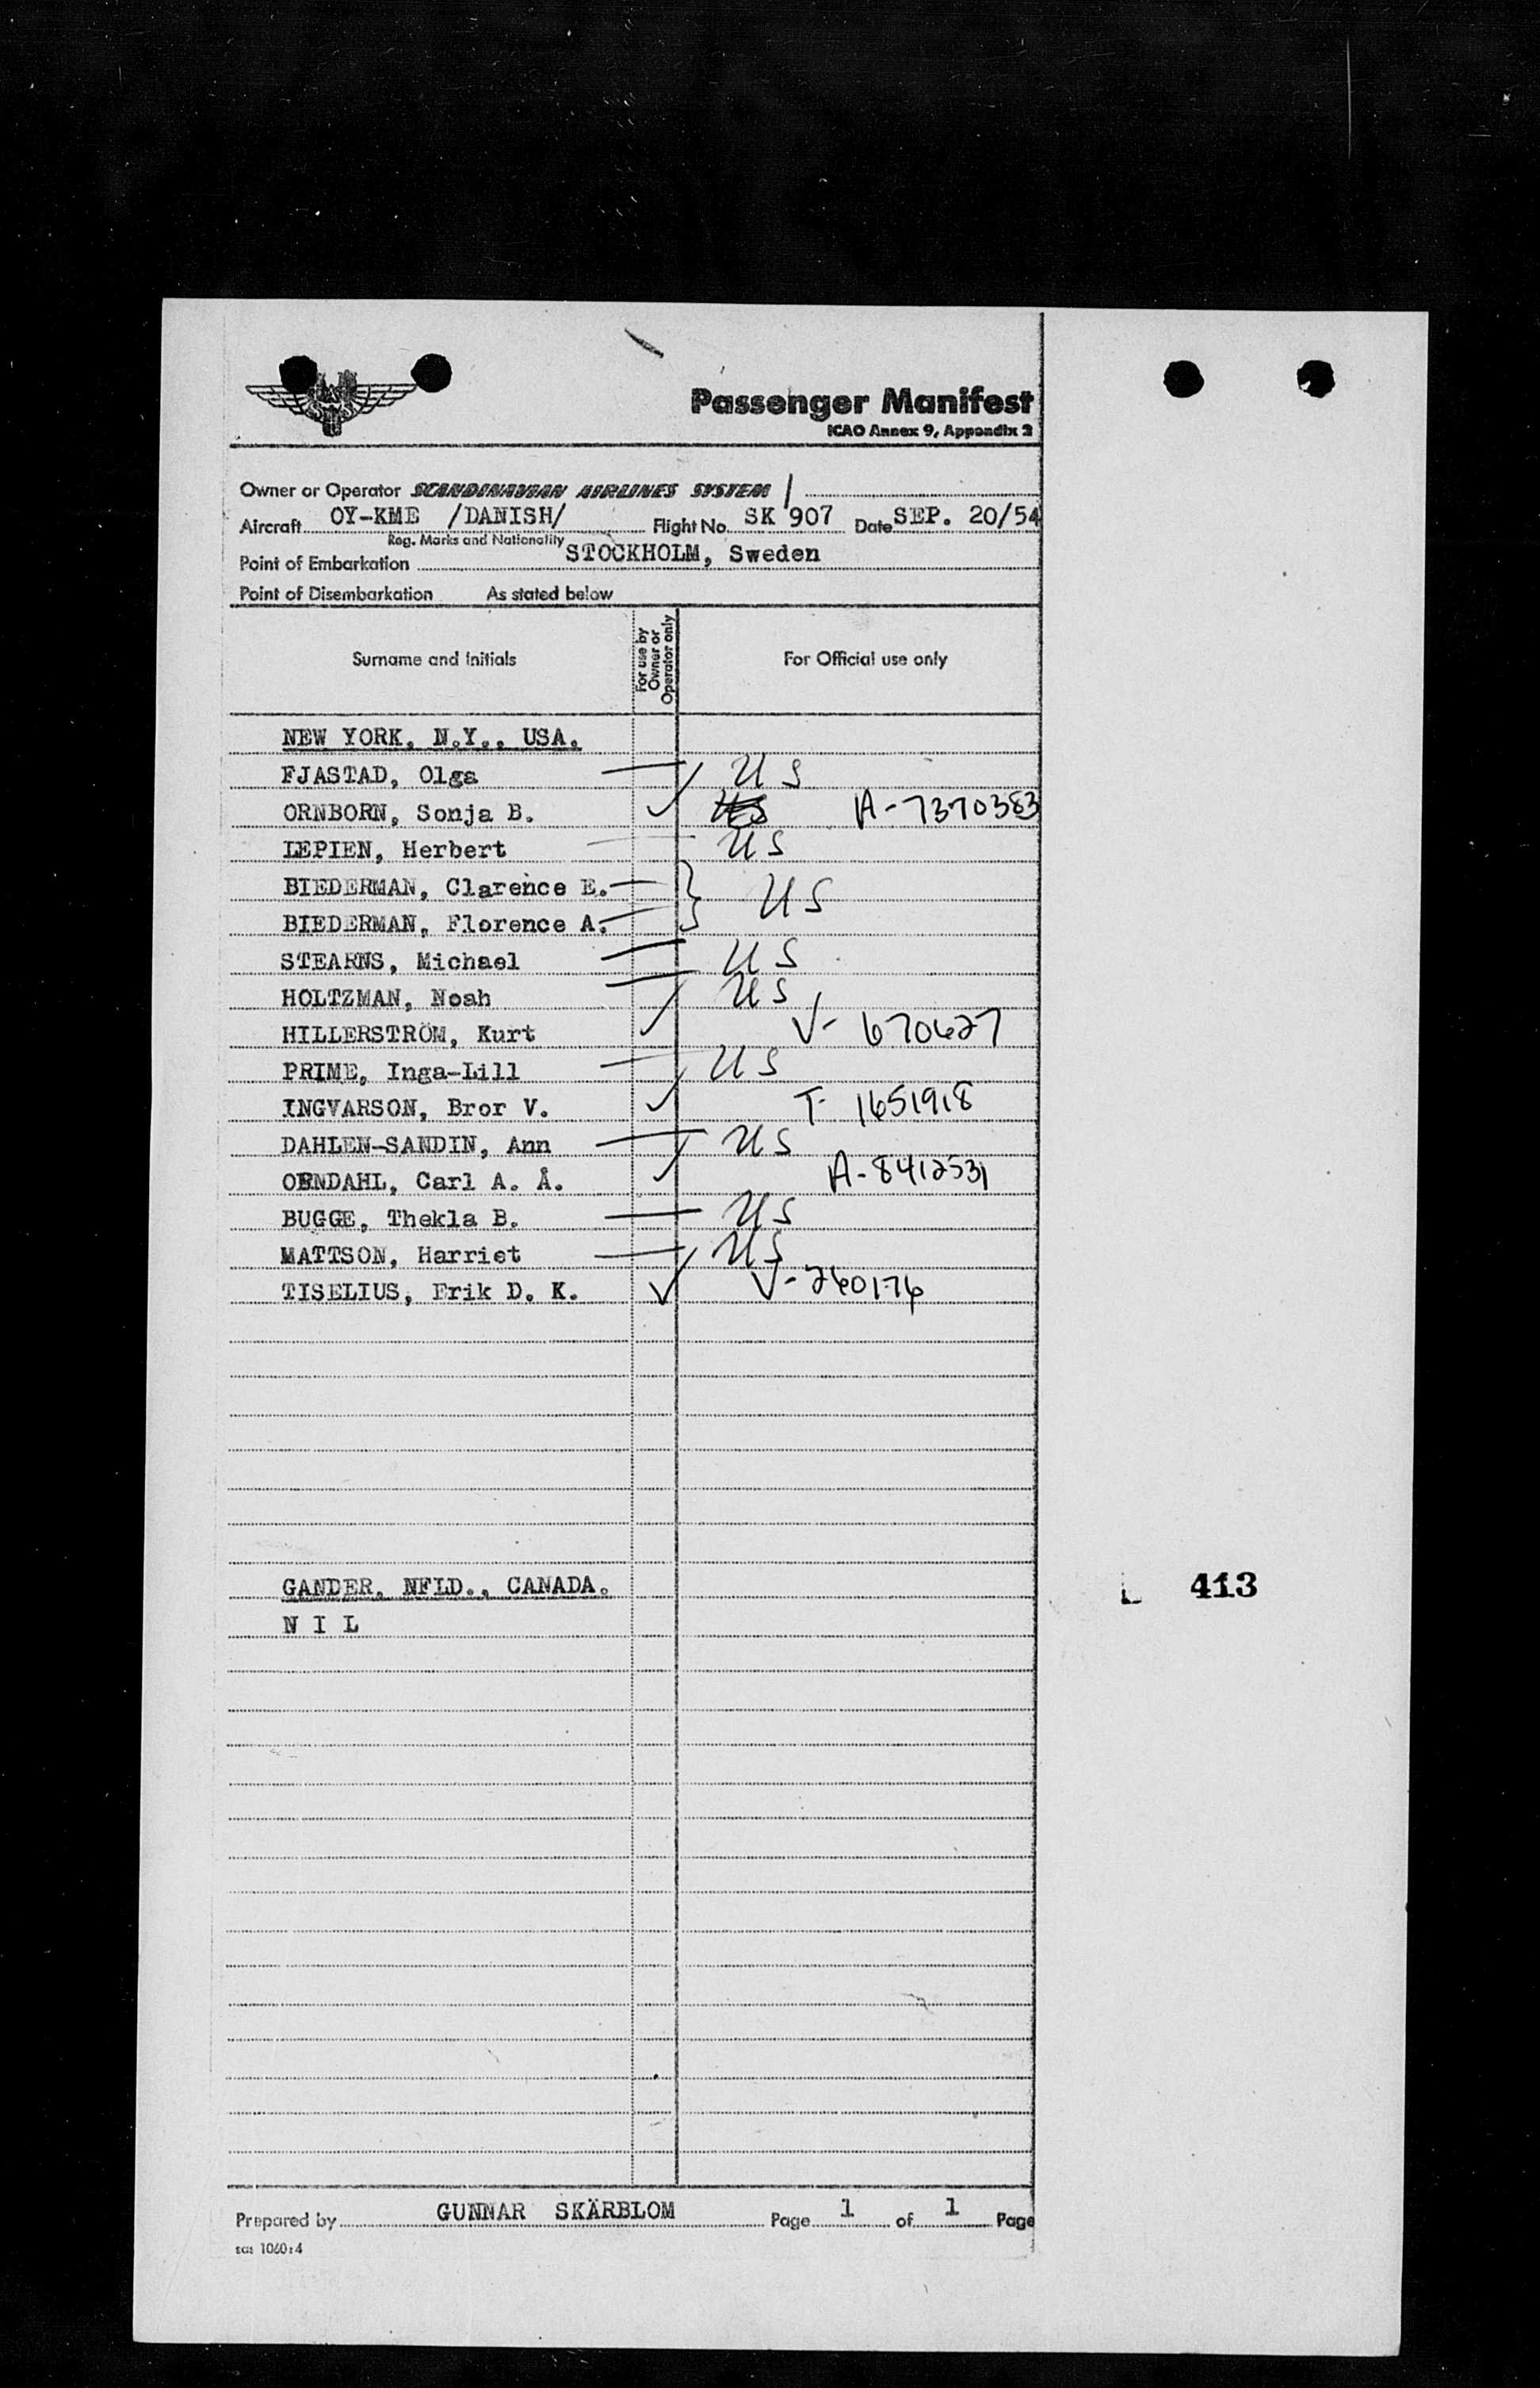 Passenger Manifest
ICAO Annex 9, Appendix 2
Owner or Operator SCANDINAVIAN AIRLINES SYSTEM
Aircraft OY-KME /DANISH/ Flight No. SK 907 Date SEP. 20/54
Reg. Marks and Nationality
Point of Embarkation STOCKHOLM, Sweden
Point of Disembarkation As stated below
Surname and Initials For use by Owner or Operator only For Official use only
NEW YORK, N.Y., USA.
FJASTAD, Olga US
ORNBORN, Sonja B. ✓ A-7370383
LEPIEN, Herbert US
BIEDERMAN, Clarence E. US
BIEDERMAN, Florence A.
STEARNS, Michael US
HOLTZMAN, Noah US
HILLERSTRÖM, Kurt ✓ V- 670627
PRIME, Inga-Lill US
INGVARSON, Bror V. ✓ T- 1651918
DAHLEN-SANDIN, Ann US
OENDAHL, Carl A. Å. ✓ A-8412531
BUGGE, Thekla B. US
MATTSON, Harriet US
TISELIUS, Erik D. K. ✓ V-260176
GANDER, NFLD., CANADA.
N I L
413
Prepared by GUNNAR SKÄRBLOM Page 1 of 1 Page
sas 1060:4